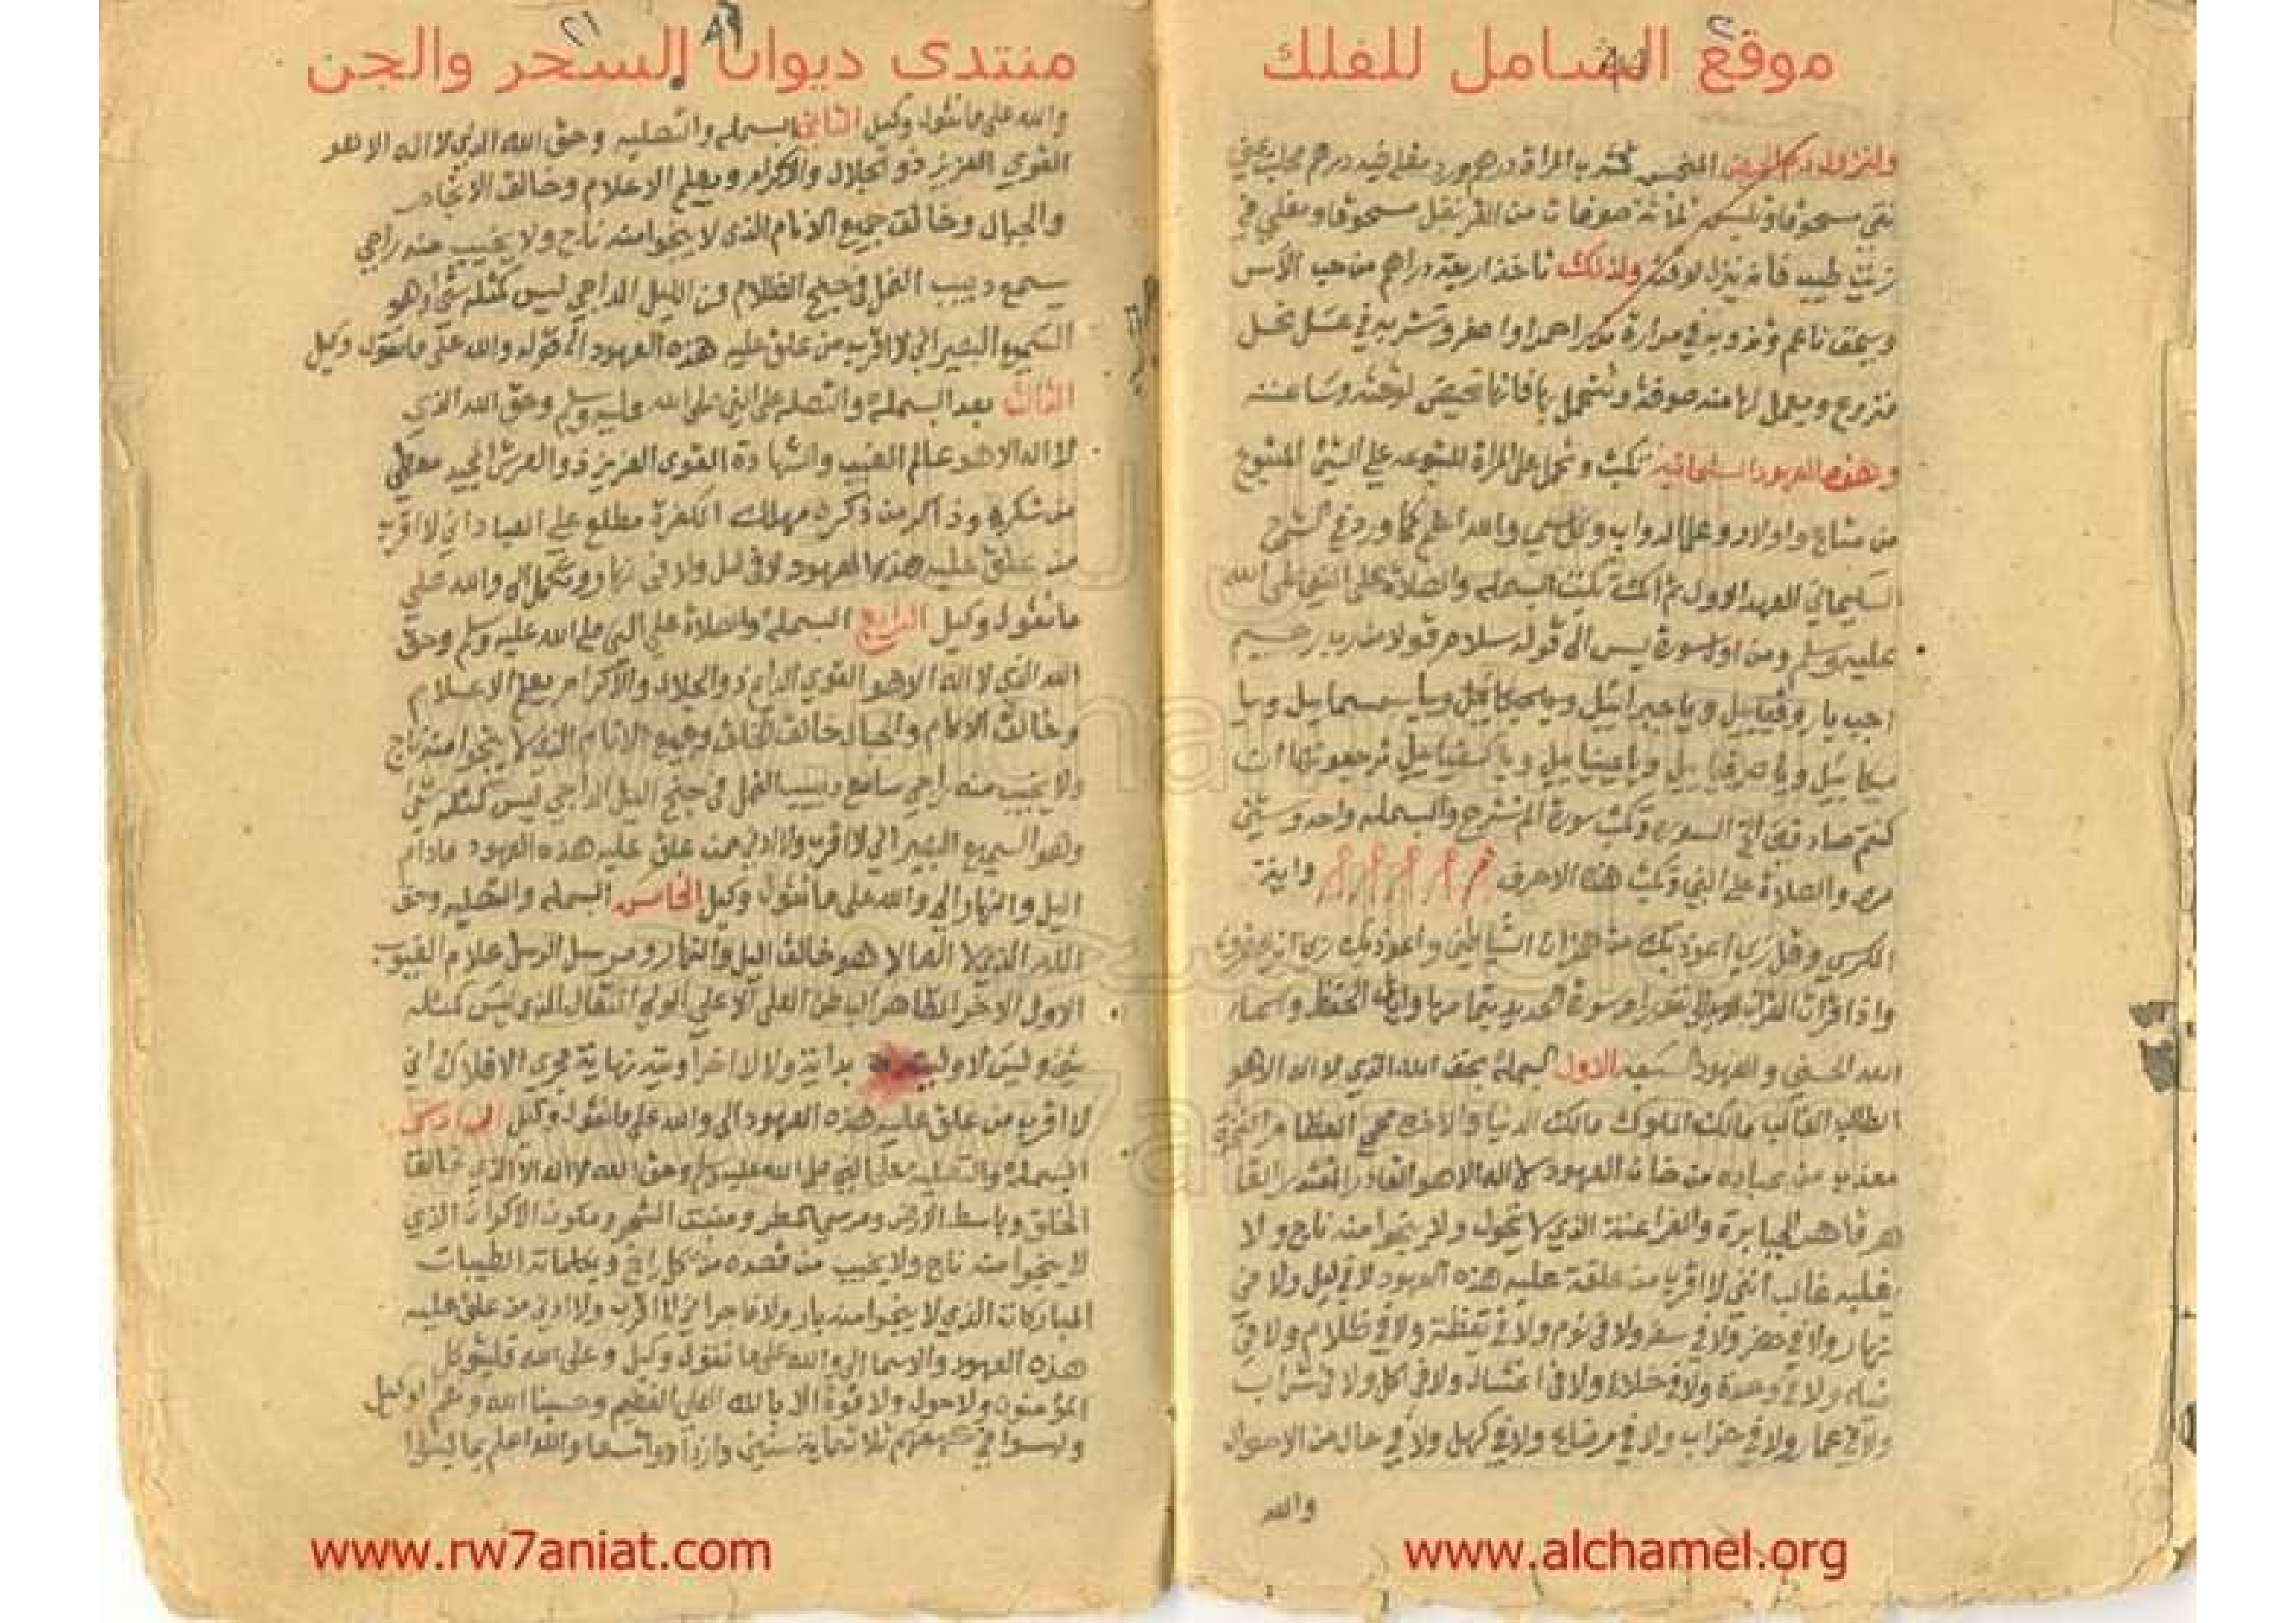 موقع الشامل للفلك
ولنزول دم الحيض المنحبس تشرب المراة درهم ورد مغلي فيه درهم محلب
نقي مسحوقا وتلبس ثلاثة صوفات من القرنفل مسحوقا ومغلي في
زيت طيب فانه ينزل لوقته ولذلك تاخذ اربعة دراهم من حب الآس
ويدق ناعم وتذوبه في مرارة احمر او اصفر وتشربه في عسل نحل
منزوع ويعمل لها منه صوفة وتتحمل بها فانها تحيض لوقته وساعته
وهذه العهود السليمانيه تكتب وتحمل على المراة للتبوعه على الشئ المتبوع
من متاع واولاد وعلى الدواب وكل شي والله اعلم كما ورد في الشرح
السليماني العهد الاول ثم اكتب تكتب البسمله والصلاة على النبي صلى الله
عليه وسلم ومن اول سورة يس الى قوله سلام قولا من رب رحيم
اجب يا روقيايل ويا جبرائيل ويا سمسمايل ويا
ميكائيل ويا صرفيايل ويا عينيايل ويا كسفيايل ترجعونها ان
كنتم صادقين الى السورة وتكتب سورة الم نشرح والبسمله واحد وستين
مره والصلاة على النبي وتكتب هذه الاحرف واية
الكرسي وقل ربي اعوذ بك من همزات الشياطين واعوذ بك ربي ان يحضرون
واذا قرات القران سورة الحديد بتمامها وايات الحفظ واسماء
الله الحسنى والعهود السبعه الاول البسملة بحق الله الذي لا اله الا هو
الطالب الغالب مالك الملوك مالك الدنيا والاخرة محي العظام
معذب من عباده من خان العهود لا اله الا هو القادر المقتدر القا
هر قاهر الجبابرة والفراعنة الذي لا يحول ولا ينجوا منه ناج ولا
يغلبه غالب انني لا اقرب من علقة عليه هذه العهود لا في ليل ولا في
نهار ولا في حضر ولا في سفر ولا في نوم ولا في يقظة ولا في ظلام ولا في
ضياء ولا في وحدة ولا في خلاء ولا في اغتسال ولا في اكل ولا في شراب
ولا في عمار ولا في خراب ولا في رضاع ولا في كهل ولا في حال من الاحوال
والله
www.alchamel.org
منتدى ديوان السحر والجن
والله على ما نقول وكيل الثاني البسمله والتصليه وحق الله الذي لا اله الا هو
القوي العزيز ذو الجلال والاكرام ويعلم الاعلام وخالق
والجبال وخالق جميع الانام الذي لا ينجوا منه ناج ولا يخيب منه راجي
يسمع دبيب النمل في جنح الظلام من الليل الداجي ليس كمثله شئ وهو
السميع البصير اني لا اقرب من علق عليه هذه العهود الى قوله والله على ما نقول وكيل
الثالث بعد البسملة والتصله على النبي صلى الله عليه وسلم وحق الله الذي
لا اله الا هو عالم الغيب والشهادة القوى العزيز ذو العرش المجيد معطي
من شكره وذاكر من ذكره مهلك الكفرة مطلع على العباد اني لا اقرب
من علق عليه هذه العهود لا في ليل ولا في نهار وتكمل الى والله على
ما نقول وكيل الرابع البسملة والصلاة على النبي صلى الله عليه وسلم وحق
الله الذي لا اله الا هو القوي الدايم ذو الجلال والاكرام يعلم الاعلام
وخالق الاكام والجبال خالق الخلق وجميع الانام الذي لا ينجوا منه ناج
ولا يخيب منه راجي سامع دبيب النمل في جنح اليل الداجي ليس كمثله شئ
وهو السميع البصير اني لا اقرب ولا ادني ممن علق عليه هذه العهود مادام
اليل والنهار الى والله على ما نقول وكيل الخامس البسمله والتصليه وحق
الله الذي لا اله الا هو خالق اليل والنهار ومرسل الرسل علام الغيوب
الاول الاخر الظاهر الباطن العلي الاعلى الولي المتعال الذي ليس كمثله
شئ وليس لاوليته بداية ولا لاخراويته نهاية مجري الافلاك اني
لا اقرب من علق عليه هذه العهود الى والله على ما نقول وكيل السادس
البسملة والتصلية على النبي صلى الله عليه وسلم وحق الله لا اله الا الذي خالق
الخلق وباسط الارض ومرسي المطر ومنبت الشجر ومكون الاكوان الذي
لا ينجوا منه ناج ولا يخيب من قصده من كل راج وبكلماته الطيبات
المباركات الذي لا ينجوا منه بار ولا فاجر اني لا اقرب ولا ادني من علق عليه
هذه العهود والاسما الى والله على ما نقول وكيل وعلى الله فليتوكل
المؤمنون ولا حول ولا قوة الا بالله العلي العظيم وحسبنا الله ونعم الوكيل
ولبسوا في كهفهم ثلاثماية سنين وازدادوا تسعا والله اعلم بما لبثوا
www.rw7aniat.com